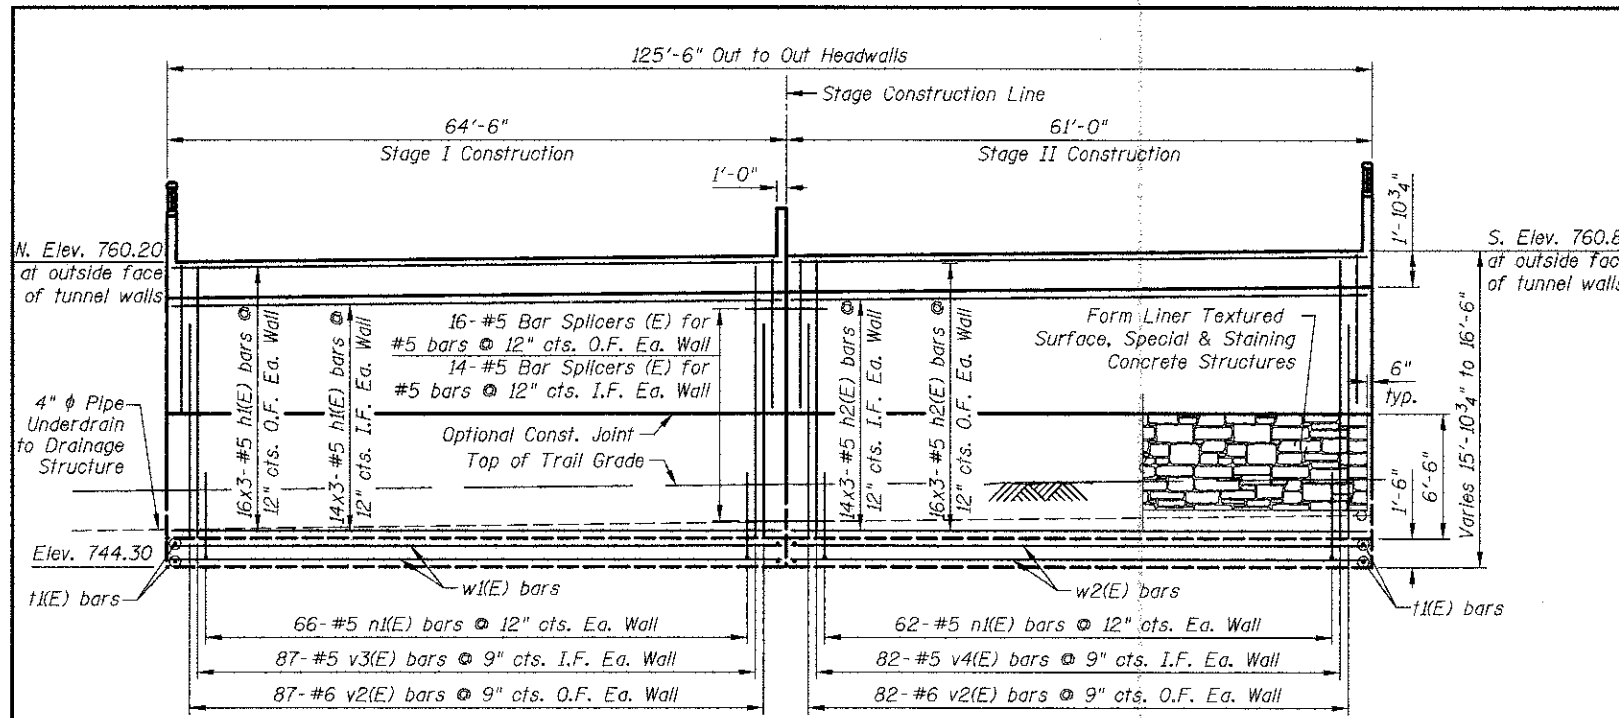 125'-6" Out to Out Headwalls
Stage Construction Line
64'-6"
Stage I Construction
61'-0"
Stage II Construction
1'-0"
1'-10¾"
N. Elev. 760.20
at outside face
of tunnel walls
S. Elev. 760.8
at outside fac
of tunnel walls
16x3- #5 h1(E) bars @
12" cts. O.F. Ea. Wall
14x3- #5 h1(E) bars @
12" cts. I.F. Ea. Wall
16- #5 Bar Splicers (E) for
#5 bars @ 12" cts. O.F. Ea. Wall
14- #5 Bar Splicers (E) for
#5 bars @ 12" cts. I.F. Ea. Wall
14x3- #5 h2(E) bars @
12" cts. I.F. Ea. Wall
16x3- #5 h2(E) bars @
12" cts. O.F. Ea. Wall
Form Liner Textured
Surface, Special & Staining
Concrete Structures
6"
typ.
4" ϕ Pipe
Underdrain
to Drainage
Structure
Optional Const. Joint
Top of Trail Grade
1'-6"
6'-6"
Varies 15'-10¾" to 16'-6"
Elev. 744.30
t1(E) bars
w1(E) bars
w2(E) bars
t1(E) bars
66- #5 n1(E) bars @ 12" cts. Ea. Wall
62- #5 n1(E) bars @ 12" cts. Ea. Wall
87- #5 v3(E) bars @ 9" cts. I.F. Ea. Wall
82- #5 v4(E) bars @ 9" cts. I.F. Ea. Wall
87- #6 v2(E) bars @ 9" cts. O.F. Ea. Wall
82- #6 v2(E) bars @ 9" cts. O.F. Ea. Wall